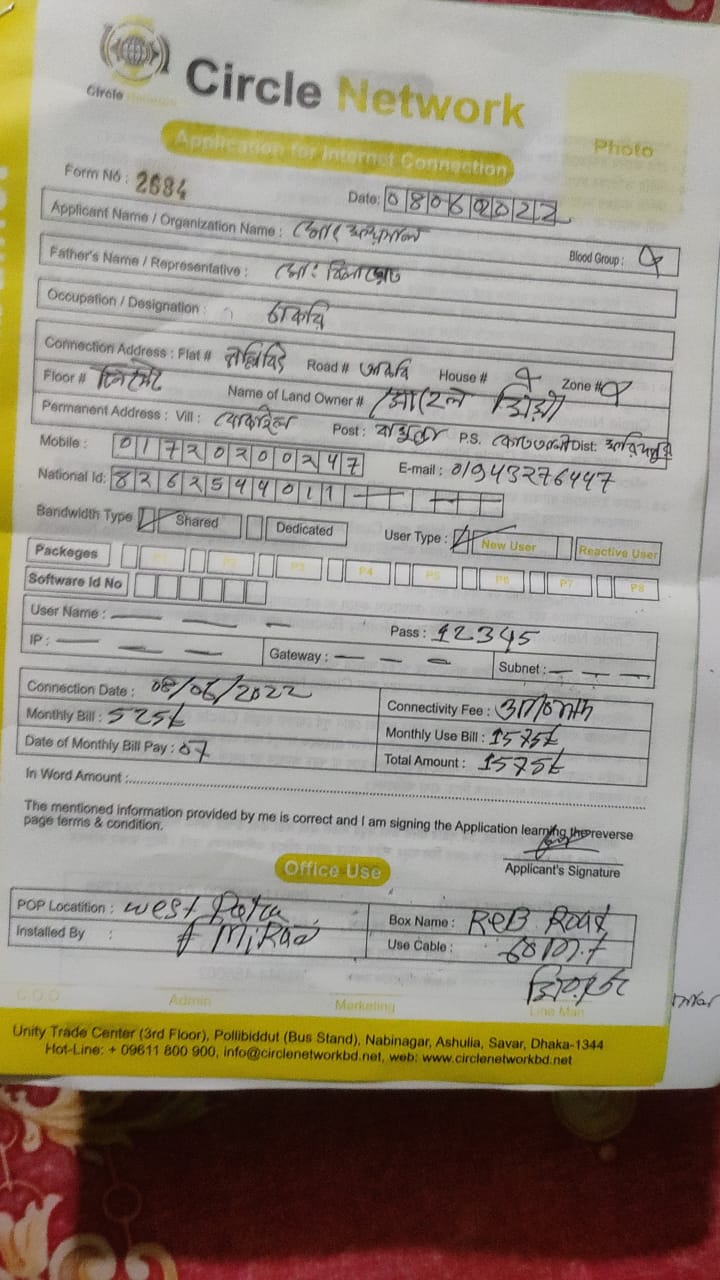 Circle
Circle Network
Application for Internet Connection
Photo
Form No : 2684
Date: 08062022
Applicant Name / Organization Name :
Blood Group :
Father's Name / Representative : মোঃ
Occupation / Designation : চাকরি
Connection Address : Flat # Road # House # Zone #
Floor # Name of Land Owner #
Permanent Address : Vill : Post : P.S. Dist:
Mobile : 01720200247 E-mail : 01943276447
National Id: 8262544011
Bandwidth Type Shared Dedicated User Type : New User Reactive User
Packeges P1 P2 P3 P4 P5 P6 P7 P8
Software Id No
User Name : — — — Pass : 12345
IP : — — — Gateway : — — — Subnet : — — —
Connection Date : 08/06/2022 Connectivity Fee : 3 Month
Monthly Bill : 525৳ Monthly Use Bill : 1575৳
Date of Monthly Bill Pay : 07 Total Amount : 1575৳
In Word Amount :
The mentioned information provided by me is correct and I am signing the Application learning the reverse
page terms & condition.
Applicant's Signature
Office Use
POP Locatition : west Box Name : ReB Road
Installed By : Use Cable :
C.O.O Admin Marketing Line Man
Unity Trade Center (3rd Floor), Pollibiddut (Bus Stand), Nabinagar, Ashulia, Savar, Dhaka-1344
Hot-Line: + 09611 800 900, info@circlenetworkbd.net, web: www.circlenetworkbd.net